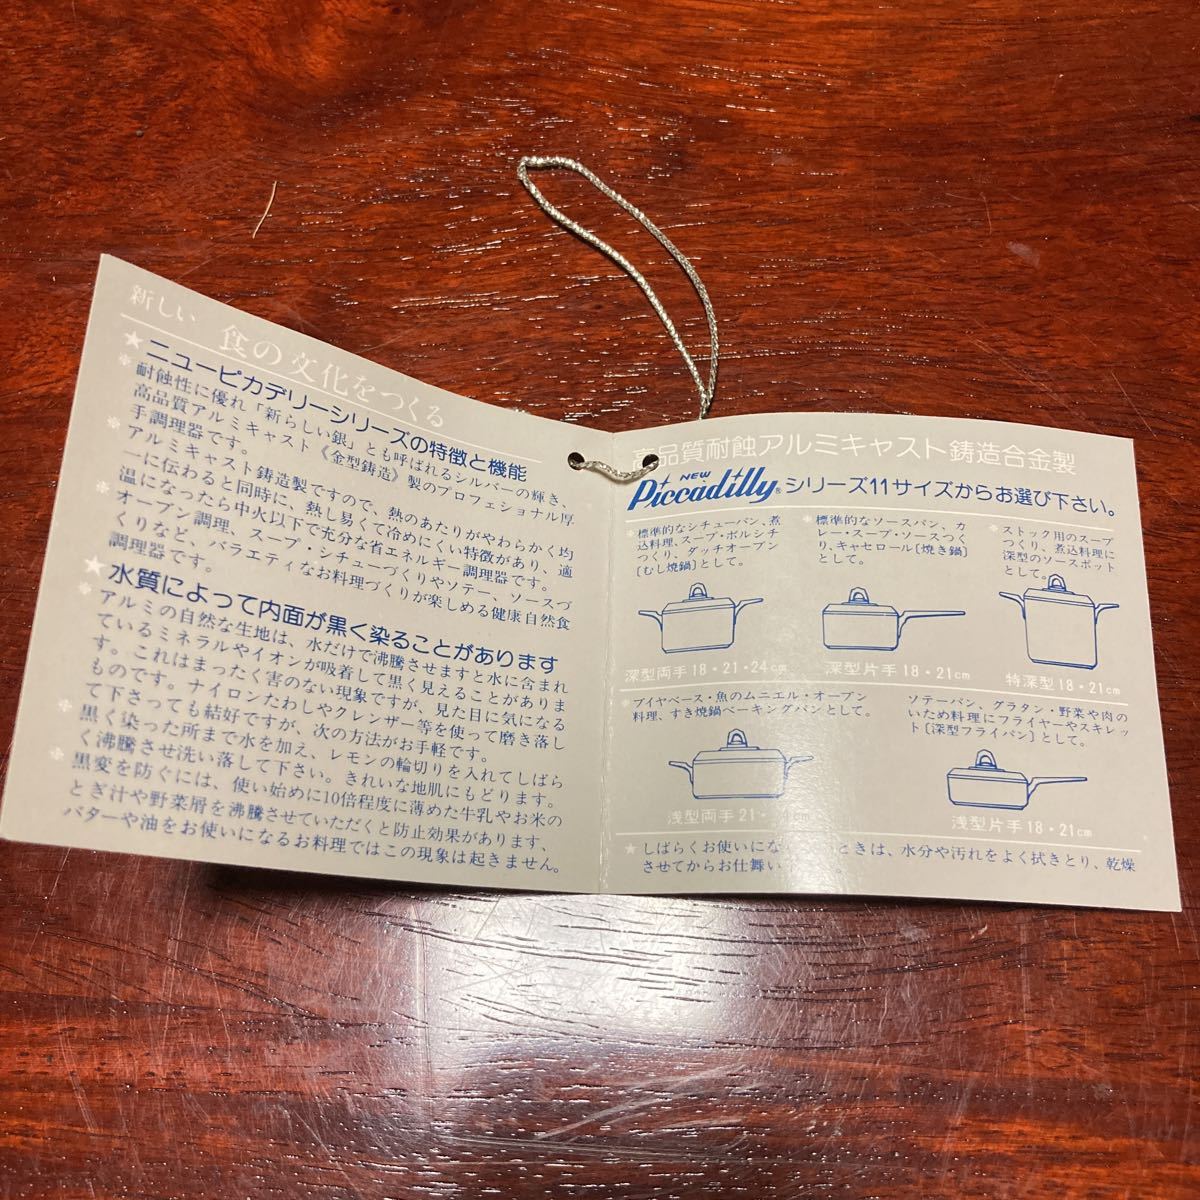 新しい 食の文化をつくる
★ニューピカデリーシリーズの特徴と機能
※耐蝕性に優れ「新らしい銀」とも呼ばれるシルバーの輝き、
高品質アルミキャスト《金型鋳造》製のプロフェショナル厚
手調理器です。
※アルミキャスト鋳造製ですので、熱のあたりがやわらかく均
一に伝わると同時に、熱し易くて冷めにくい特徴があり、適
温になったら中火以下で充分な省エネルギー調理器です。
※オーブン調理、スープ・シチューづくりやソテー、ソースづ
くりなど、バラエティなお料理づくりが楽しめる健康自然食
調理器です。
★水質によって内面が黒く染ることがあります
アルミの自然な生地は、水だけで沸騰させますと水に含まれ
ているミネラルやイオンが吸着して黒く見えることがありま
す。これはまったく害のない現象ですが、見た目に気になる
ものです。ナイロンたわしやクレンザー等を使って磨き落し
て下さっても結好ですが、次の方法がお手軽です。
※黒く染った所まで水を加え、レモンの輪切りを入れてしばら
く沸騰させ洗い落して下さい。きれいな地肌にもどります。
※黒変を防ぐには、使い始めに10倍程度に薄めた牛乳やお米の
とぎ汁や野菜屑を沸騰させていただくと防止効果があります、
バターや油をお使いになるお料理ではこの現象は起きません。
高品質耐蝕アルミキャスト鋳造合金製
NEW
Piccadilly®シリーズ11サイズからお選び下さい。
※標準的なシチューパン、煮
込料理、スープ・ボルシチ
つくり、ダッチオーブン
〔むし焼鍋〕として。
深型両手18・21・24cm
※標準的なソースパン、カ
レー・スープ・ソースつく
り、キャセロール〔焼き鍋〕
として。
深型片手18・21cm
※ストック用のスープ
つくり、煮込料理に
深型のソースポット
として。
特深型18・21cm
※ブイヤベース・魚のムニエル・オーブン
料理、すき焼鍋ベーキングパンとして。
浅型両手21・
ソテーパン、グラタン・野菜や肉の
いため料理にフライヤーやスキレッ
ト〔深型フライパン〕として。
浅型片手18・21cm
★しばらくお使いにな ときは、水分や汚れをよく拭きとり、乾燥
させてからお仕舞い